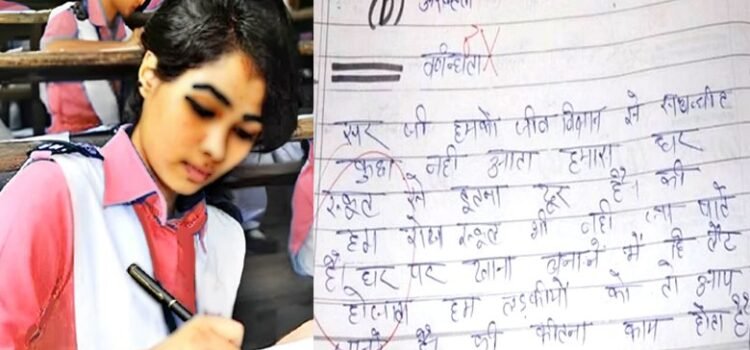 (D)
वर्णान्धता X
सर जी हमको जीव विज्ञान से सम्बन्धीत
कुछ नही आता हमारा घर
स्कूल से इतना दूर है। की
हम रोज स्कूल भी नही जा पाते
है। घर पर खाना बनाने में हि लेट
होजाता हम लड़कीयों को तो आप
है की कीतना काम होता है